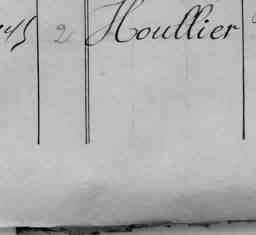 2 Houllier